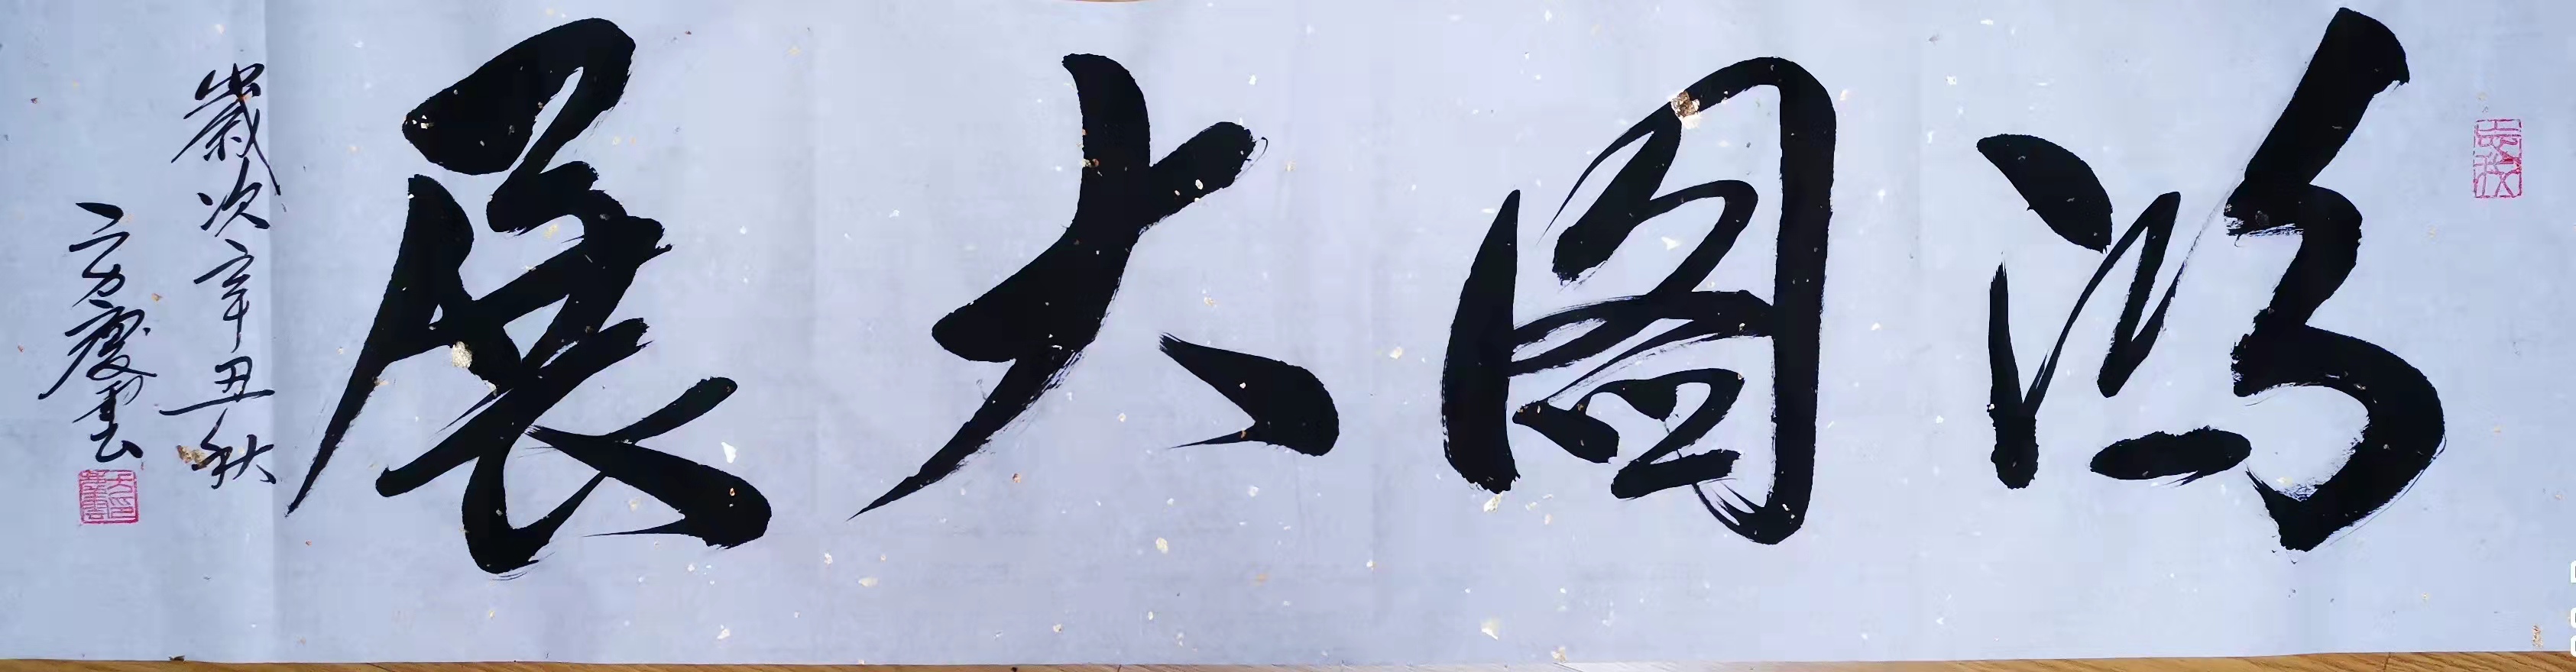 鴻圖大展
歲次辛丑秋
方慶雲